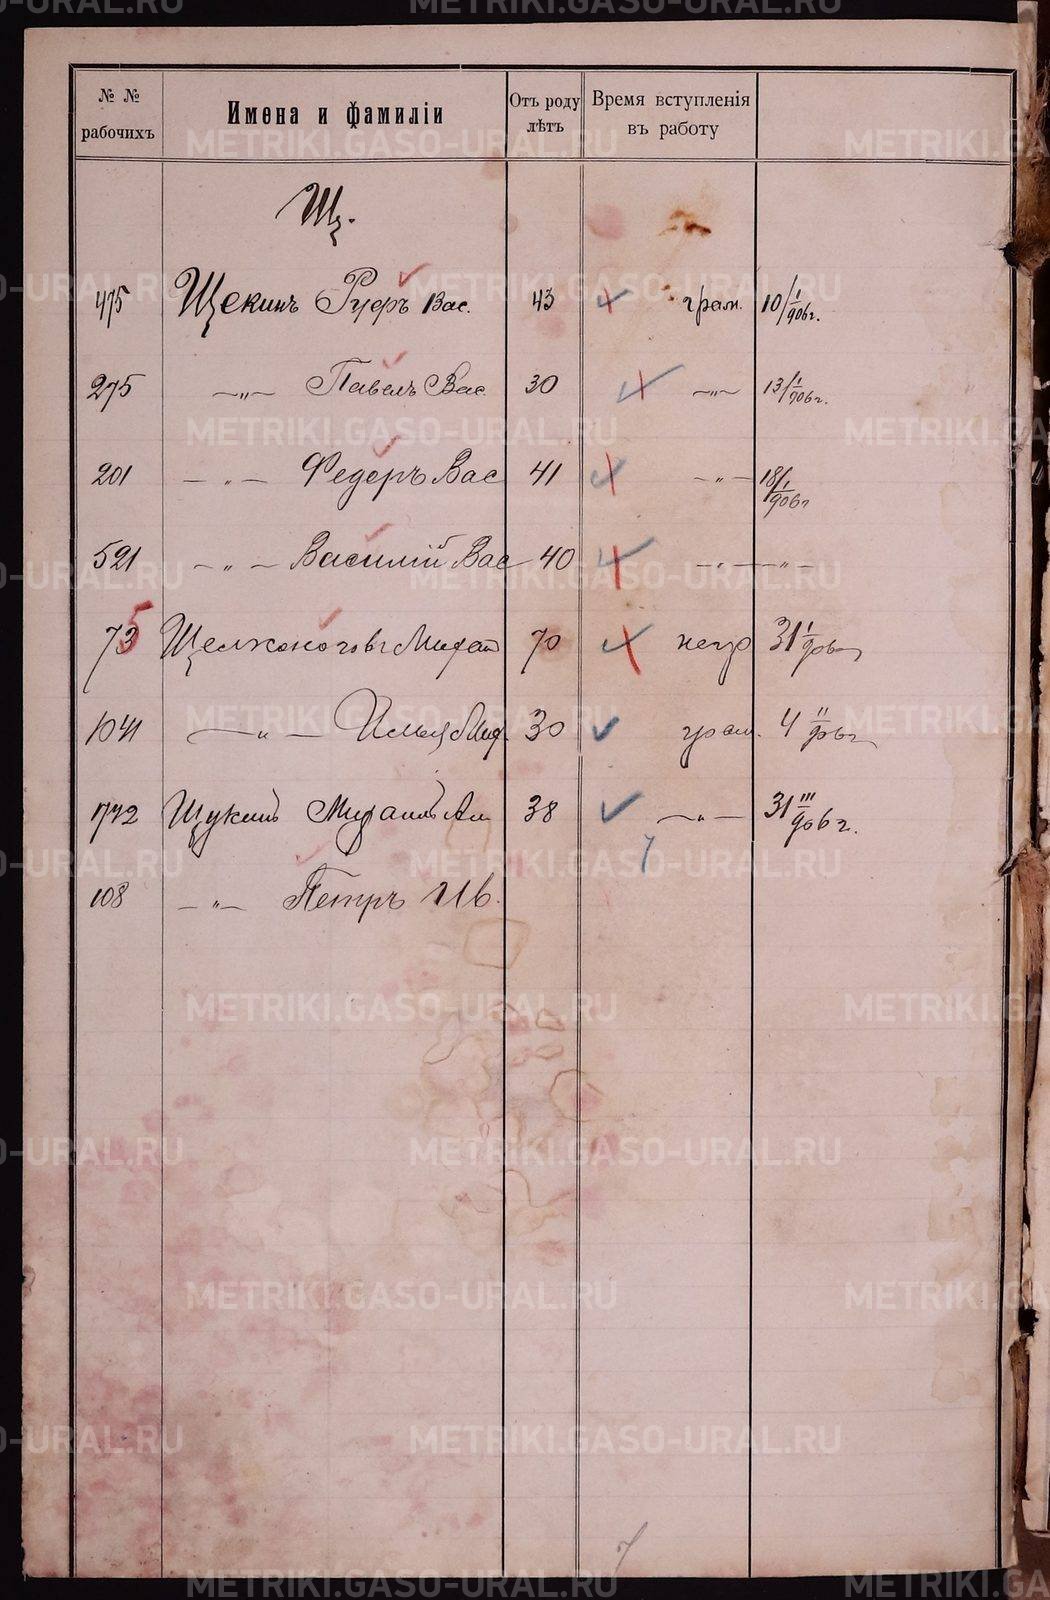 № № рабочихъ Имена и фамиліи Отъ роду лѣтъ Время вступленія въ работу
Щ.
475 Щекинъ Вас. 43 грам. 10/I 906 г.
275 —„— Павелъ Вас. 30 —„— 13/I 906 г.
201 —„— Федеръ Вас 41 —„— 18/I 906 г
521 —„— Василій Вас 40 —„— —„—
73 5 Щелконоговъ 70 негр 31 I 906 г
1041 —„— Илья Мих. 30 грам. 4 II 906 г
1772 Щукинъ Михаилъ Ал 38 —„— 31 III 906 г.
108 —„— Петръ Ив.
7
7
METRIKI.GASO-URAL.RU